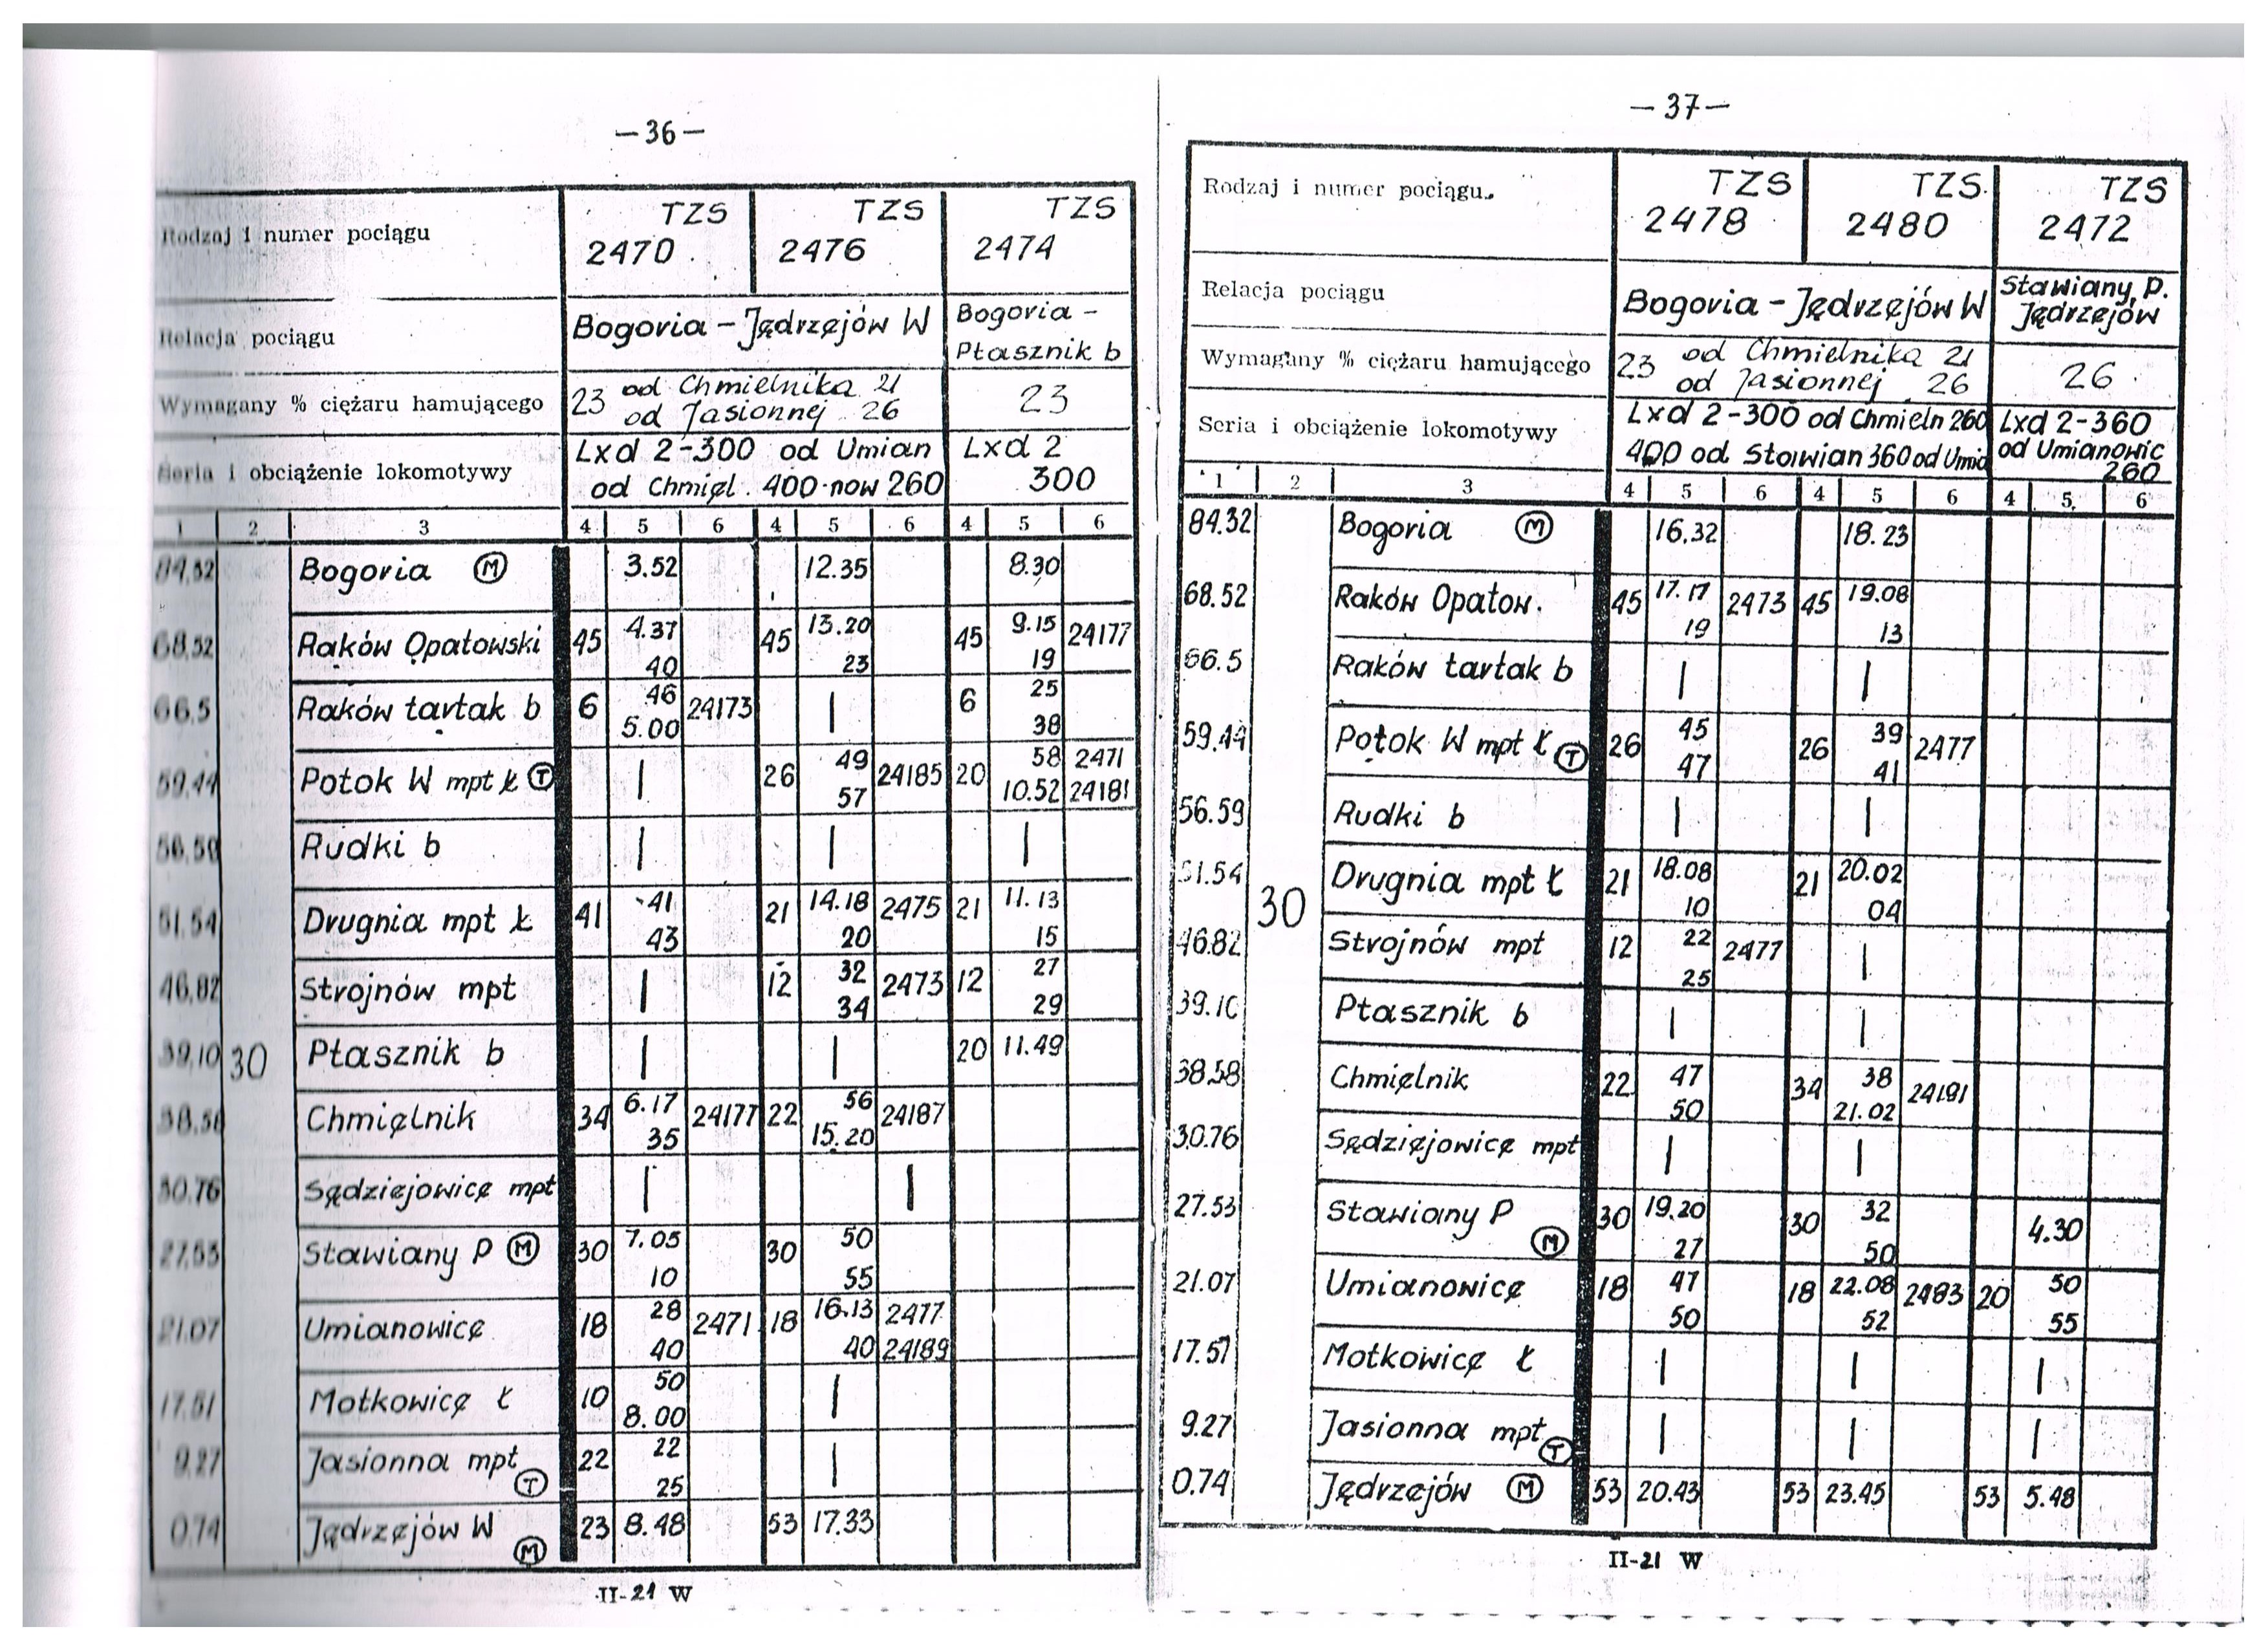 —36—
Rodzaj i numer pociągu TZS 2470 TZS 2476 TZS 2474
Relacja pociągu Bogoria - Jędrzejów W Bogoria - Ptasznik b
Wymagany % ciężaru hamującego 23 od Chmielnika 21 od Jasionnej 26 23
Seria i obciążenie lokomotywy Lxd 2-300 od Umian od Chmiel. 400 now 260 Lxd 2 300
1 2 3 4 5 6 4 5 6 4 5 6
84,32 Bogoria M 3.52 12.35 8.30
68,52 Raków Opatowski 45 4.37 40 45 13.20 23 45 9.15 19 24177
66,5 Raków tartak b 6 46 5.00 24173 | 6 25 38
59,44 Potok W mpt Ł T | 26 49 57 24185 20 58 10.52 2471 24181
56,59 Rudki b | | |
51,54 Drugnia mpt Ł 41 41 43 21 14.18 20 2475 21 11.13 15
46,82 Strojnów mpt | 12 32 34 2473 12 27 29
39,10 30 Ptasznik b | | 20 11.49
38,58 Chmielnik 34 6.17 35 24177 22 56 15.20 24187
30.76 Sędziejowice mpt | |
27,53 Stawiany P M 30 7.05 10 30 50 55
21.07 Umianowice 18 28 40 2471 18 16.13 40 2477 24189
17.51 Motkowice Ł 10 50 8.00 |
9.27 Jasionna mpt T 22 22 25 |
0.74 Jędrzejów W M 23 8.48 53 17.33
II-21 W
—37—
Rodzaj i numer pociągu. TZS 2478 TZS 2480 TZS 2472
Relacja pociągu Bogoria - Jędrzejów W Stawiany P. Jędrzejów
Wymagany % ciężaru hamującego 23 od Chmielnika 21 od Jasionnej 26 26
Seria i obciążenie lokomotywy Lxd 2-300 od Chmieln 260 400 od Stawian 360 od Umia Lxd 2-360 od Umianowic 260
1 2 3 4 5 6 4 5 6 4 5 6
84.32 Bogoria M 16.32 18.23
68.52 Raków Opatow. 45 17.17 19 2473 45 19.08 13
66.5 Raków tartak b | |
59.44 Potok W mpt Ł T 26 45 47 26 39 41 2477
56.59 Rudki b | |
51.54 30 Drugnia mpt Ł 21 18.08 10 21 20.02 04
46.82 Strojnów mpt 12 22 25 2477 |
39.10 Ptasznik b | |
38.58 Chmielnik 22 47 50 34 38 21.02 24191
30.76 Sędziejowice mpt | |
27.53 Stawiany P M 30 19.20 27 30 32 50 4.30
21.07 Umianowice 18 47 50 18 22.08 52 2483 20 50 55
17.57 Motkowice Ł | | |
9.27 Jasionna mpt T | | |
0.74 Jędrzejów M 53 20.43 53 23.45 53 5.48
II-21 W